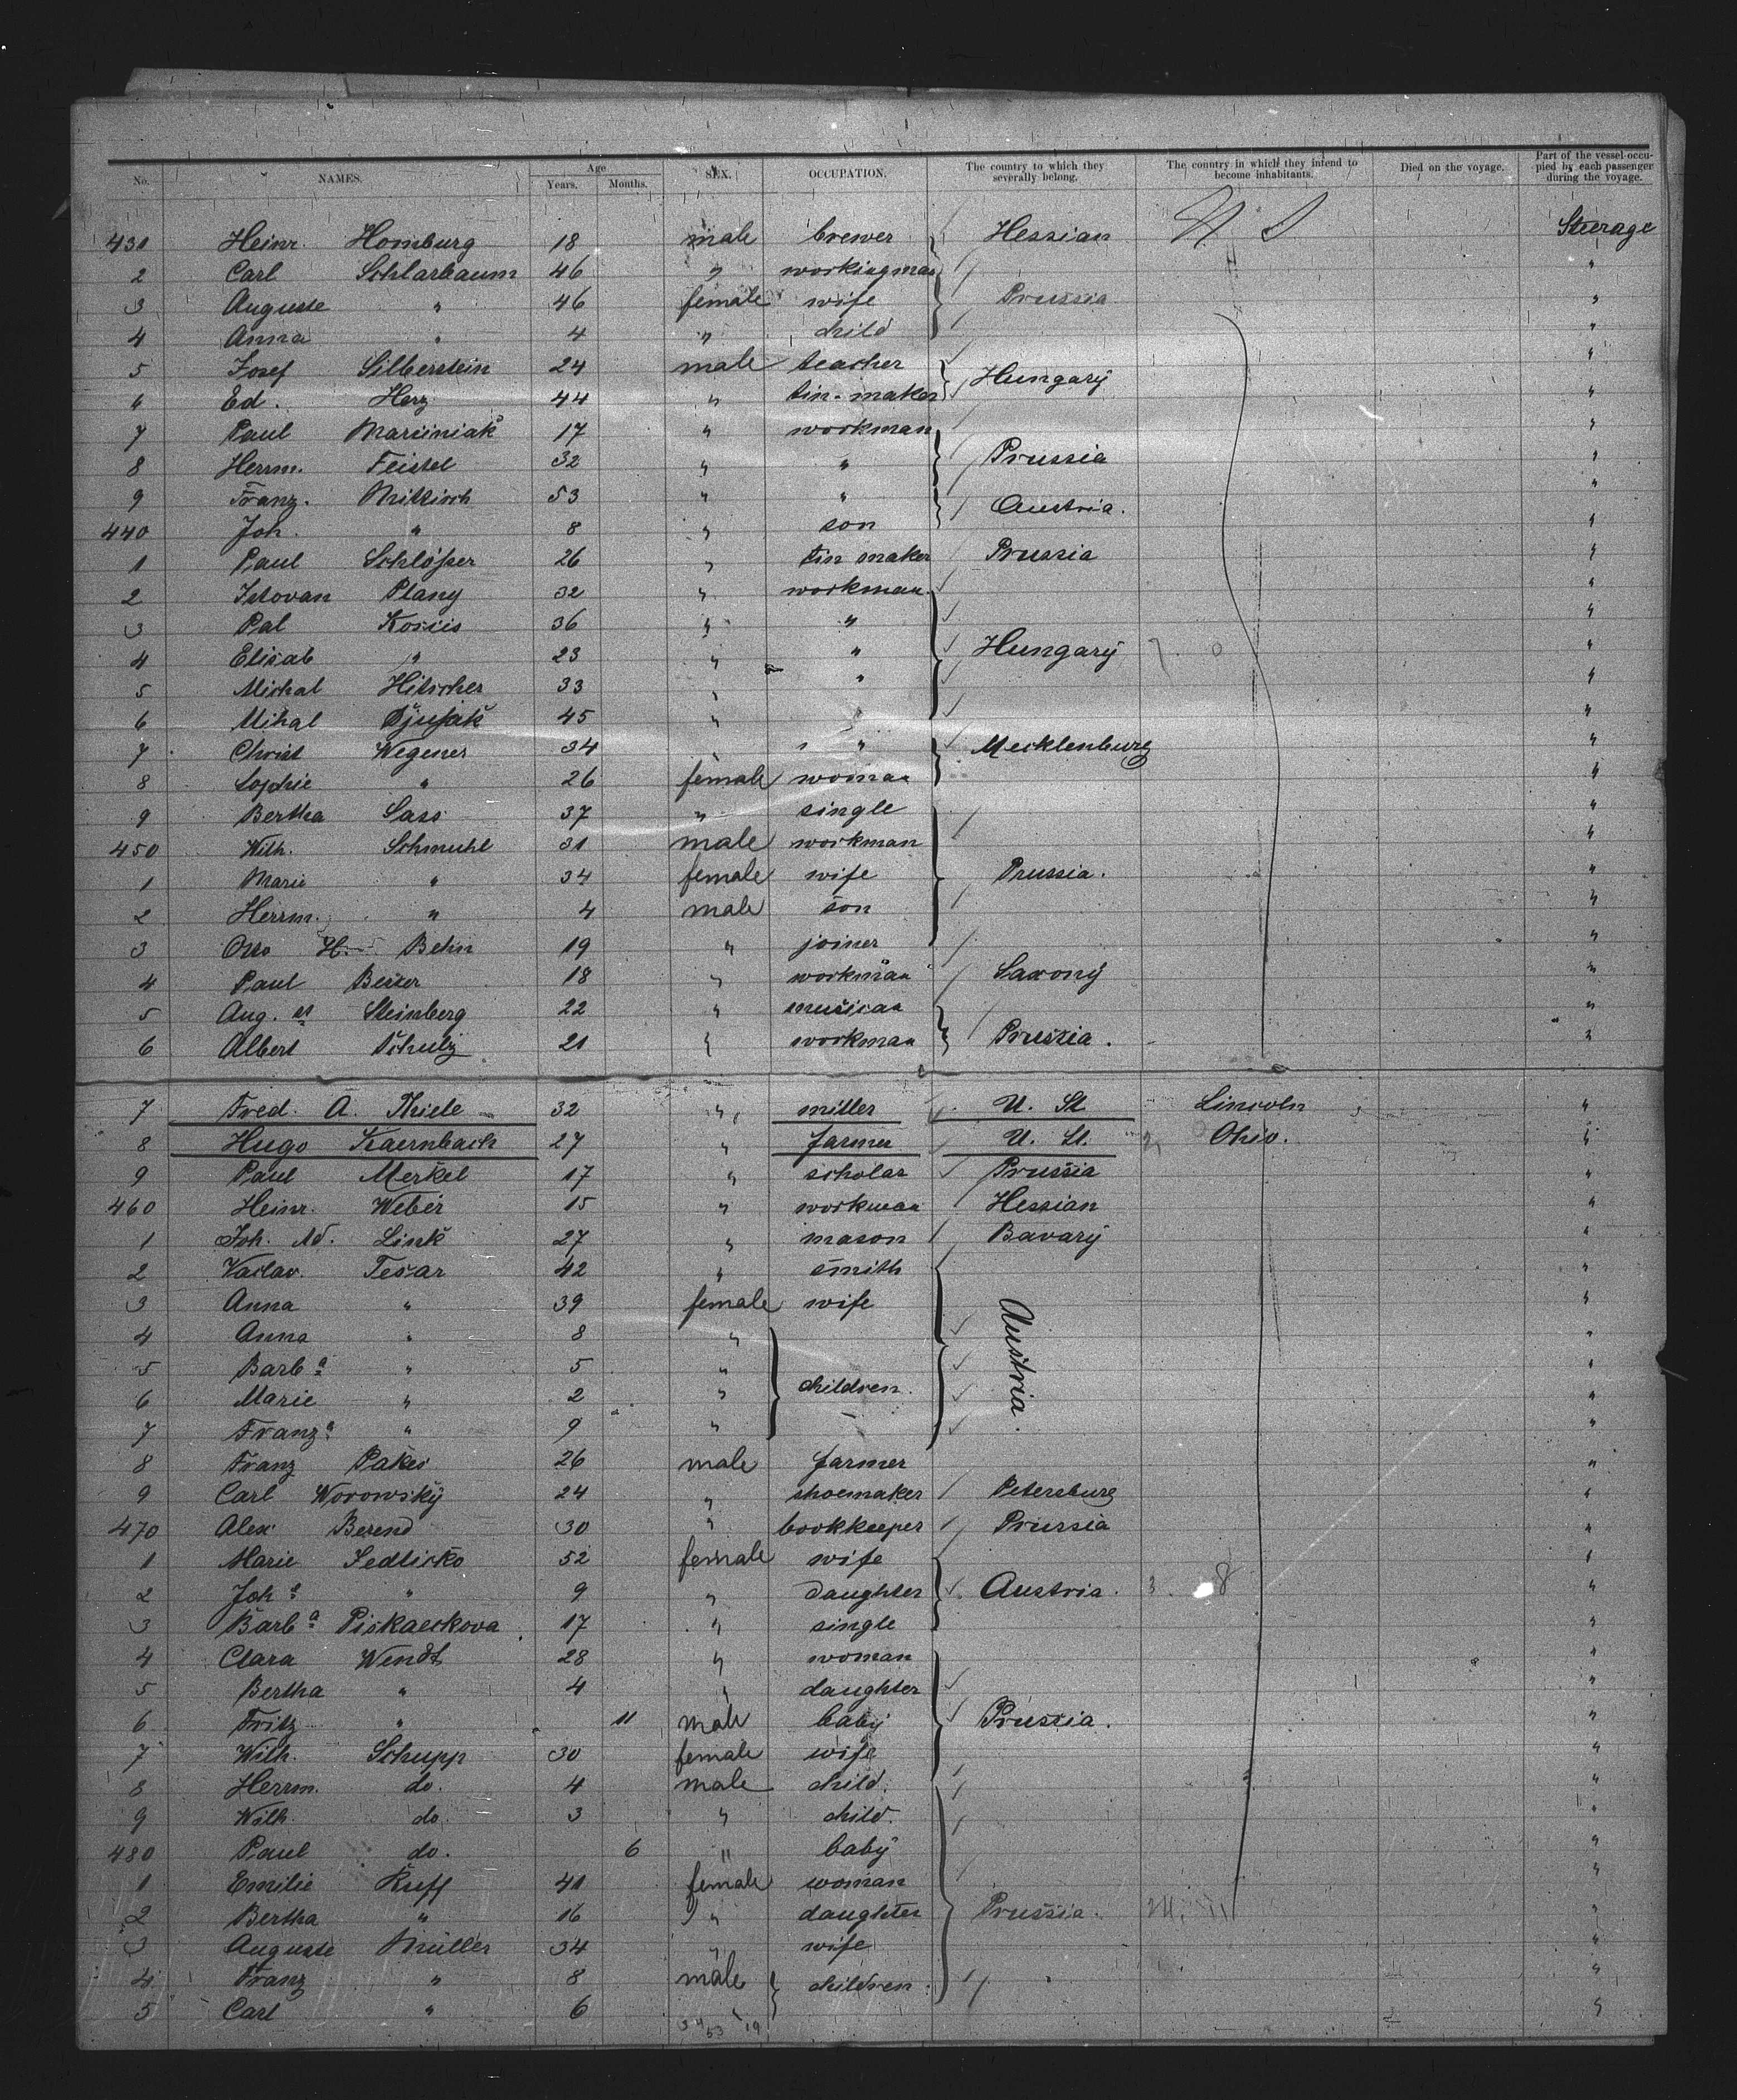 No. NAMES. Age Years. Months. SEX. OCCUPATION. The country to which they severally belong. The country in which they intend to become inhabitants. Died on the voyage. Part of the vessel occupied by each passenger during the voyage.
431 Heinr. Homburg 18 male brewer Hessian U S Steerage
2 Carl Schlarbaum 46 " workingman "
3 Auguste " 46 female wife Prussia "
4 Anna " 4 " child "
5 Josef Silberstein 24 male teacher Hungary "
6 Ed. Herz 44 " tin-maker "
7 Paul Marciniak 17 " workman "
8 Herrm. Feistel 32 " " Prussia "
9 Franz. 53 " " Austria. "
440 Joh. " 8 " son "
1 Paul Schlösser 26 " tin maker Prussia "
2 Istovan Plany 32 " workman "
3 Pal 36 " " "
4 Elisab " 23 " " Hungary "
5 Michal Hitscher 33 " " "
6 Mihal 45 " " "
7 Christ Wegener 34 " " Mecklenburg "
8 Sophie " 26 female woman "
9 Bertha Sass 37 " single "
450 Wilh. Schmuhl 31 male workman "
1 Marie " 34 female wife Prussia. "
2 Herrm. " 4 male son "
3 Otto H. Behn 19 " joiner "
4 Paul 18 " workman Saxony "
5 Aug. Steinberg 22 " musican "
6 Albert Schulz 21 " workman Prussia. "
7 Fred. A. Thiele 32 " miller U. St Lincoln "
8 Hugo Kaernbach 27 " farmer U. St. Ohio. "
9 Paul Merkel 17 " scholar Prussia "
460 Heinr. Weber 15 " workman Hessian "
1 Joh. Ad. Link 27 " mason Bavary "
2 Vaclav. Tesar 42 " smith "
3 Anna " 39 female wife Austria. "
4 Anna " 8 " "
5 Barbª " 5 " "
6 Marie " 2 " children. "
7 Franzª " 9 " "
8 Franz 26 male farmer "
9 Carl Worowsky 24 " shoemaker Petersburg "
470 Alex Berend 30 " bookkeeper Prussia "
1 Marie Sedlicko 52 female wife "
2 Johª " 9 " daughter Austria. 3. 8 "
3 Barbª Piskaeckova 17 " single "
4 Clara Wendt 28 " woman "
5 Bertha " 4 " daughter "
6 Fritz " 11 male baby Prussia. "
7 Wilh. Schupp 30 female wife "
8 Herrm. do. 4 male child. "
9 Wilh. do. 3 " child. "
480 Paul do. 6 " baby "
1 Emilie Ruff 41 female woman "
2 Bertha " 16 " daughter Prussia. "
3 Auguste Müller 34 " wife "
4 Franz " 8 male children. "
5 Carl " 6 " "